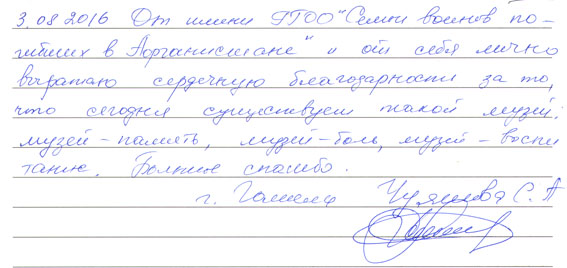 3.08.2016 От имени ГГОО "Семьи воинов по-
гибших в Афганистане" и от себя лично
выражаю сердечную благодарность за то,
что сегодня существует такой музей:
музей-память, музей-боль, музей-воспи
тание. Большое спасибо.
г. Гомель С. А